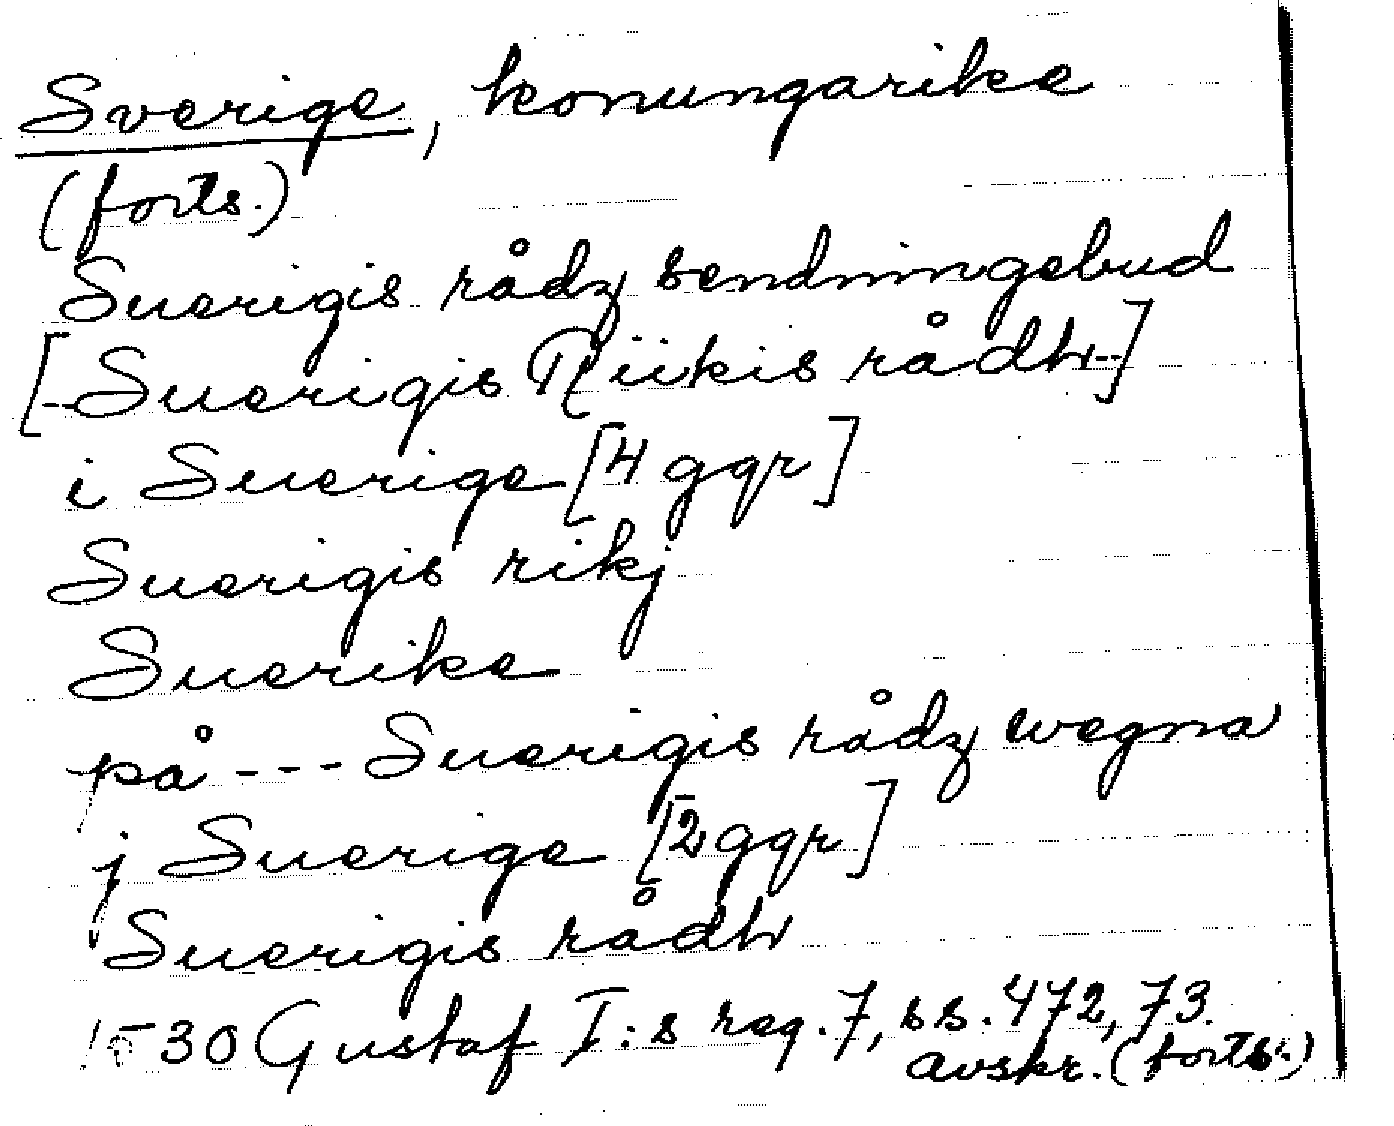 Sverige, konungarike
(forts.)
Suerigis rådz sendningebud
[--Suerigis Riikis rådh--]
i Suerige [4 ggr]
Suerigis rikj
Suerike
på --- Suerigis rådz wegna
j Suerige [2 ggr]
Suerigis rådh
1530 Gustaf I:s reg. 7, ss. 472, 73.
avskr. (forts.)